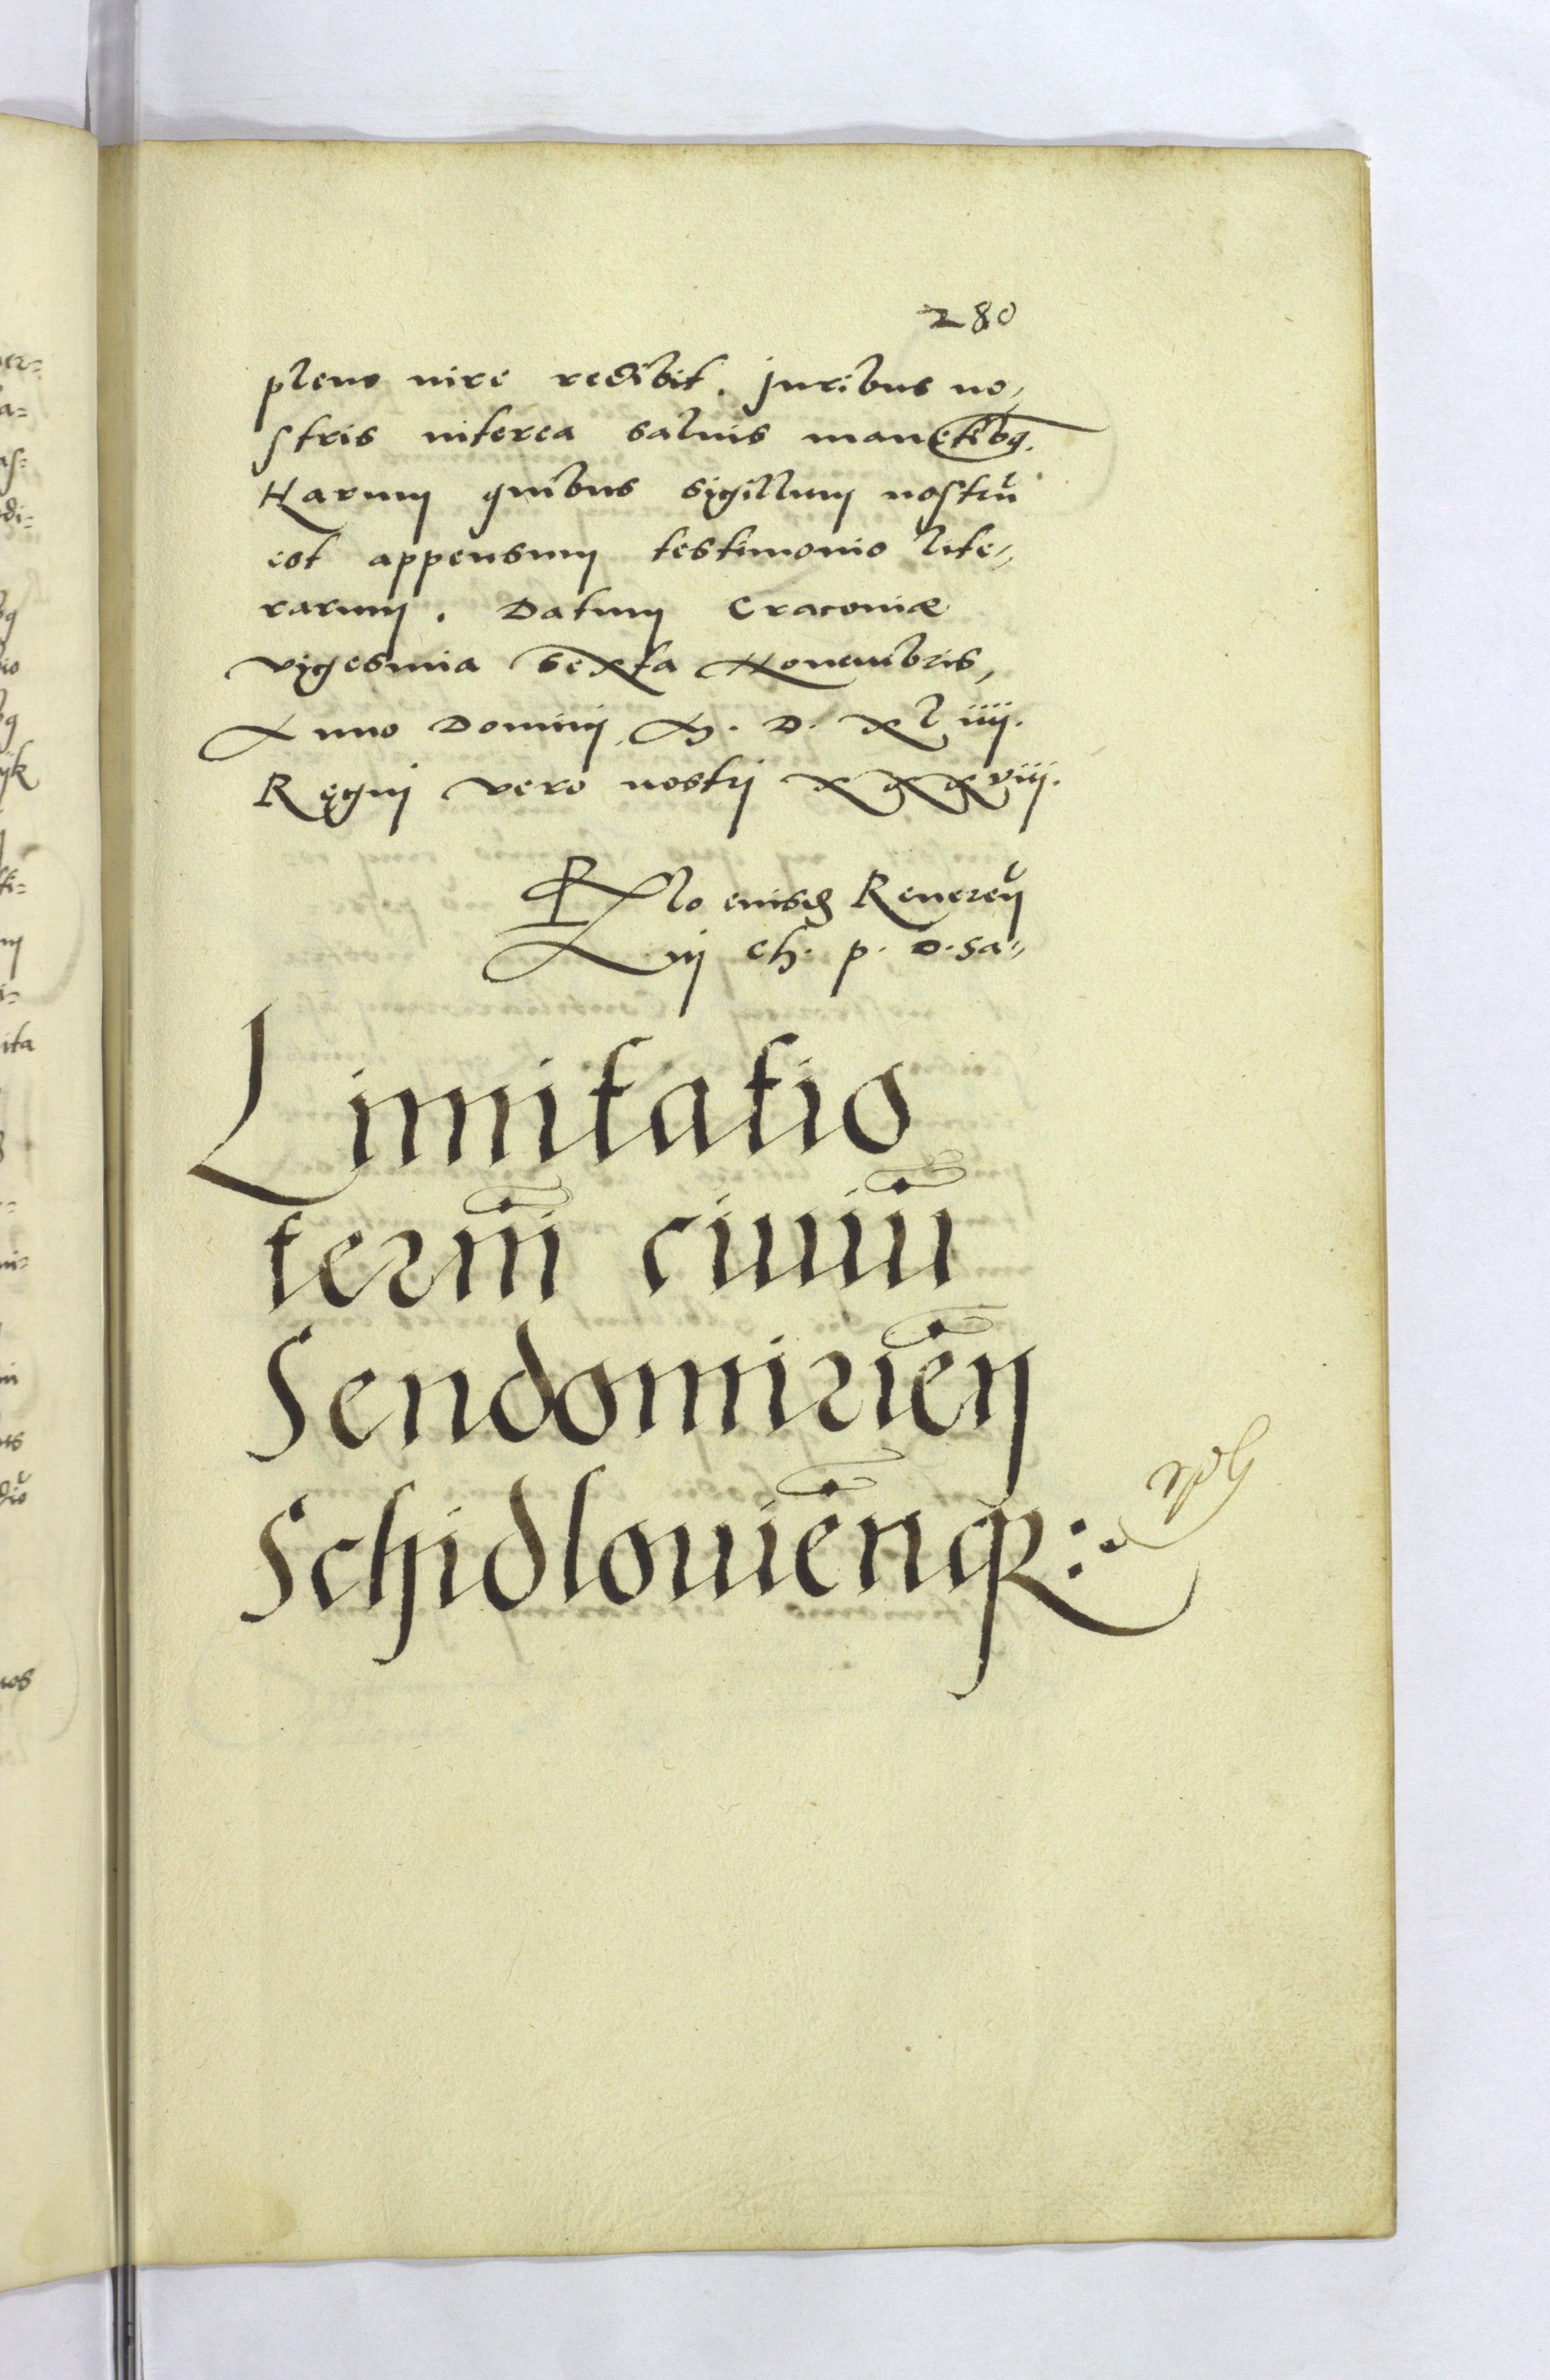 280
pleno iure redibit. Juribus no,
stris interea saluis manētibꝫ.
Harum quibus sigillum nostrū
est appensum testimonio lite,
rarum. Datum Cracoviæ
vigesima sexta Nouembris,
Anno Domini M. D. xliiii.
Regni vero nostri xxxviii.
Rlo eiusdē Reueren
in Ch. p. D. Sa=
Limitatio
termī ciuiū
Sendomirieñ
Schidlouieñqꝫ: